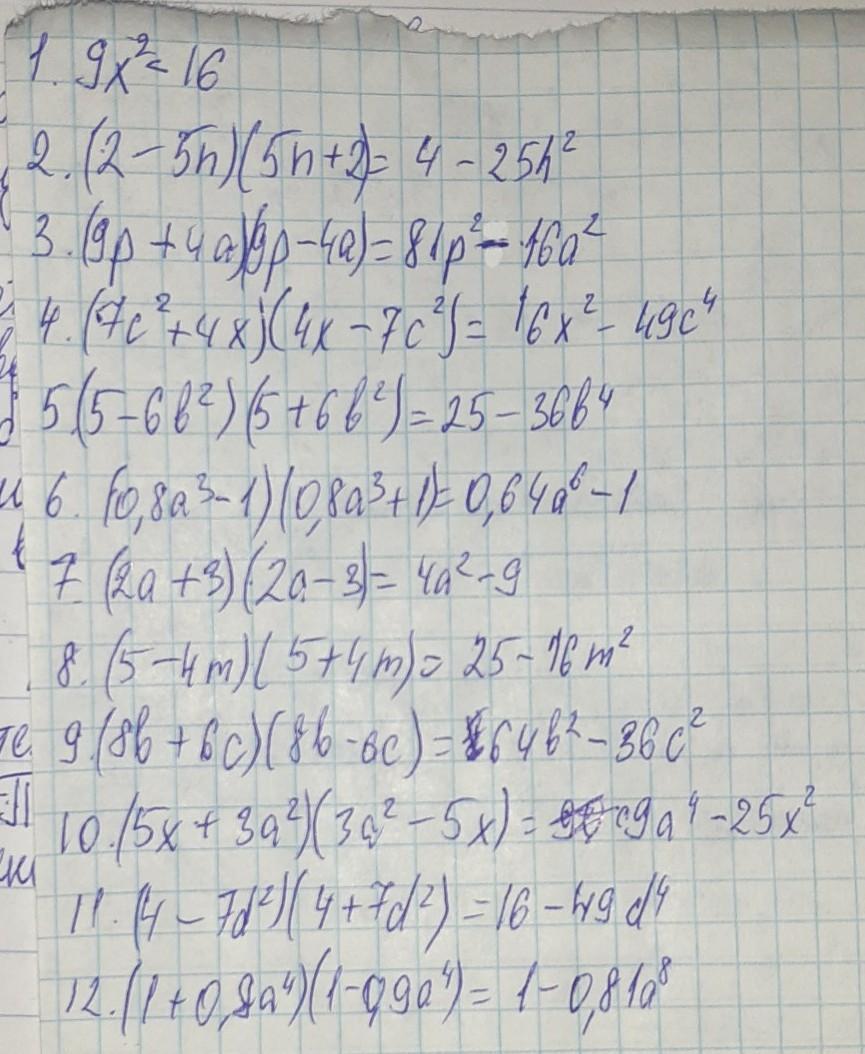 1. 9x² = 16
2. (2 - 5n)(5n + 2) = 4 - 25n²
3. (9p + 4a)(9p - 4a) = 81p² - 16a²
4. (7c² + 4x)(4x - 7c²) = 16x² - 49c⁴
5 (5 - 6b²)(5 + 6b²) = 25 - 36b⁴
6. (0,8a³ - 1)(0,8a³ + 1) = 0,64a⁶ - 1
7. (2a + 3)(2a - 3) = 4a² - 9
8. (5 - 4m)(5 + 4m) = 25 - 16m²
9. (8b + 6c)(8b - 6c) = 64b² - 36c²
10. (5x + 3a²)(3a² - 5x) = 9a⁴ - 25x²
11. (4 - 7d²)(4 + 7d²) = 16 - 49d⁴
12. (1 + 0,9a⁴)(1 - 0,9a⁴) = 1 - 0,81a⁸